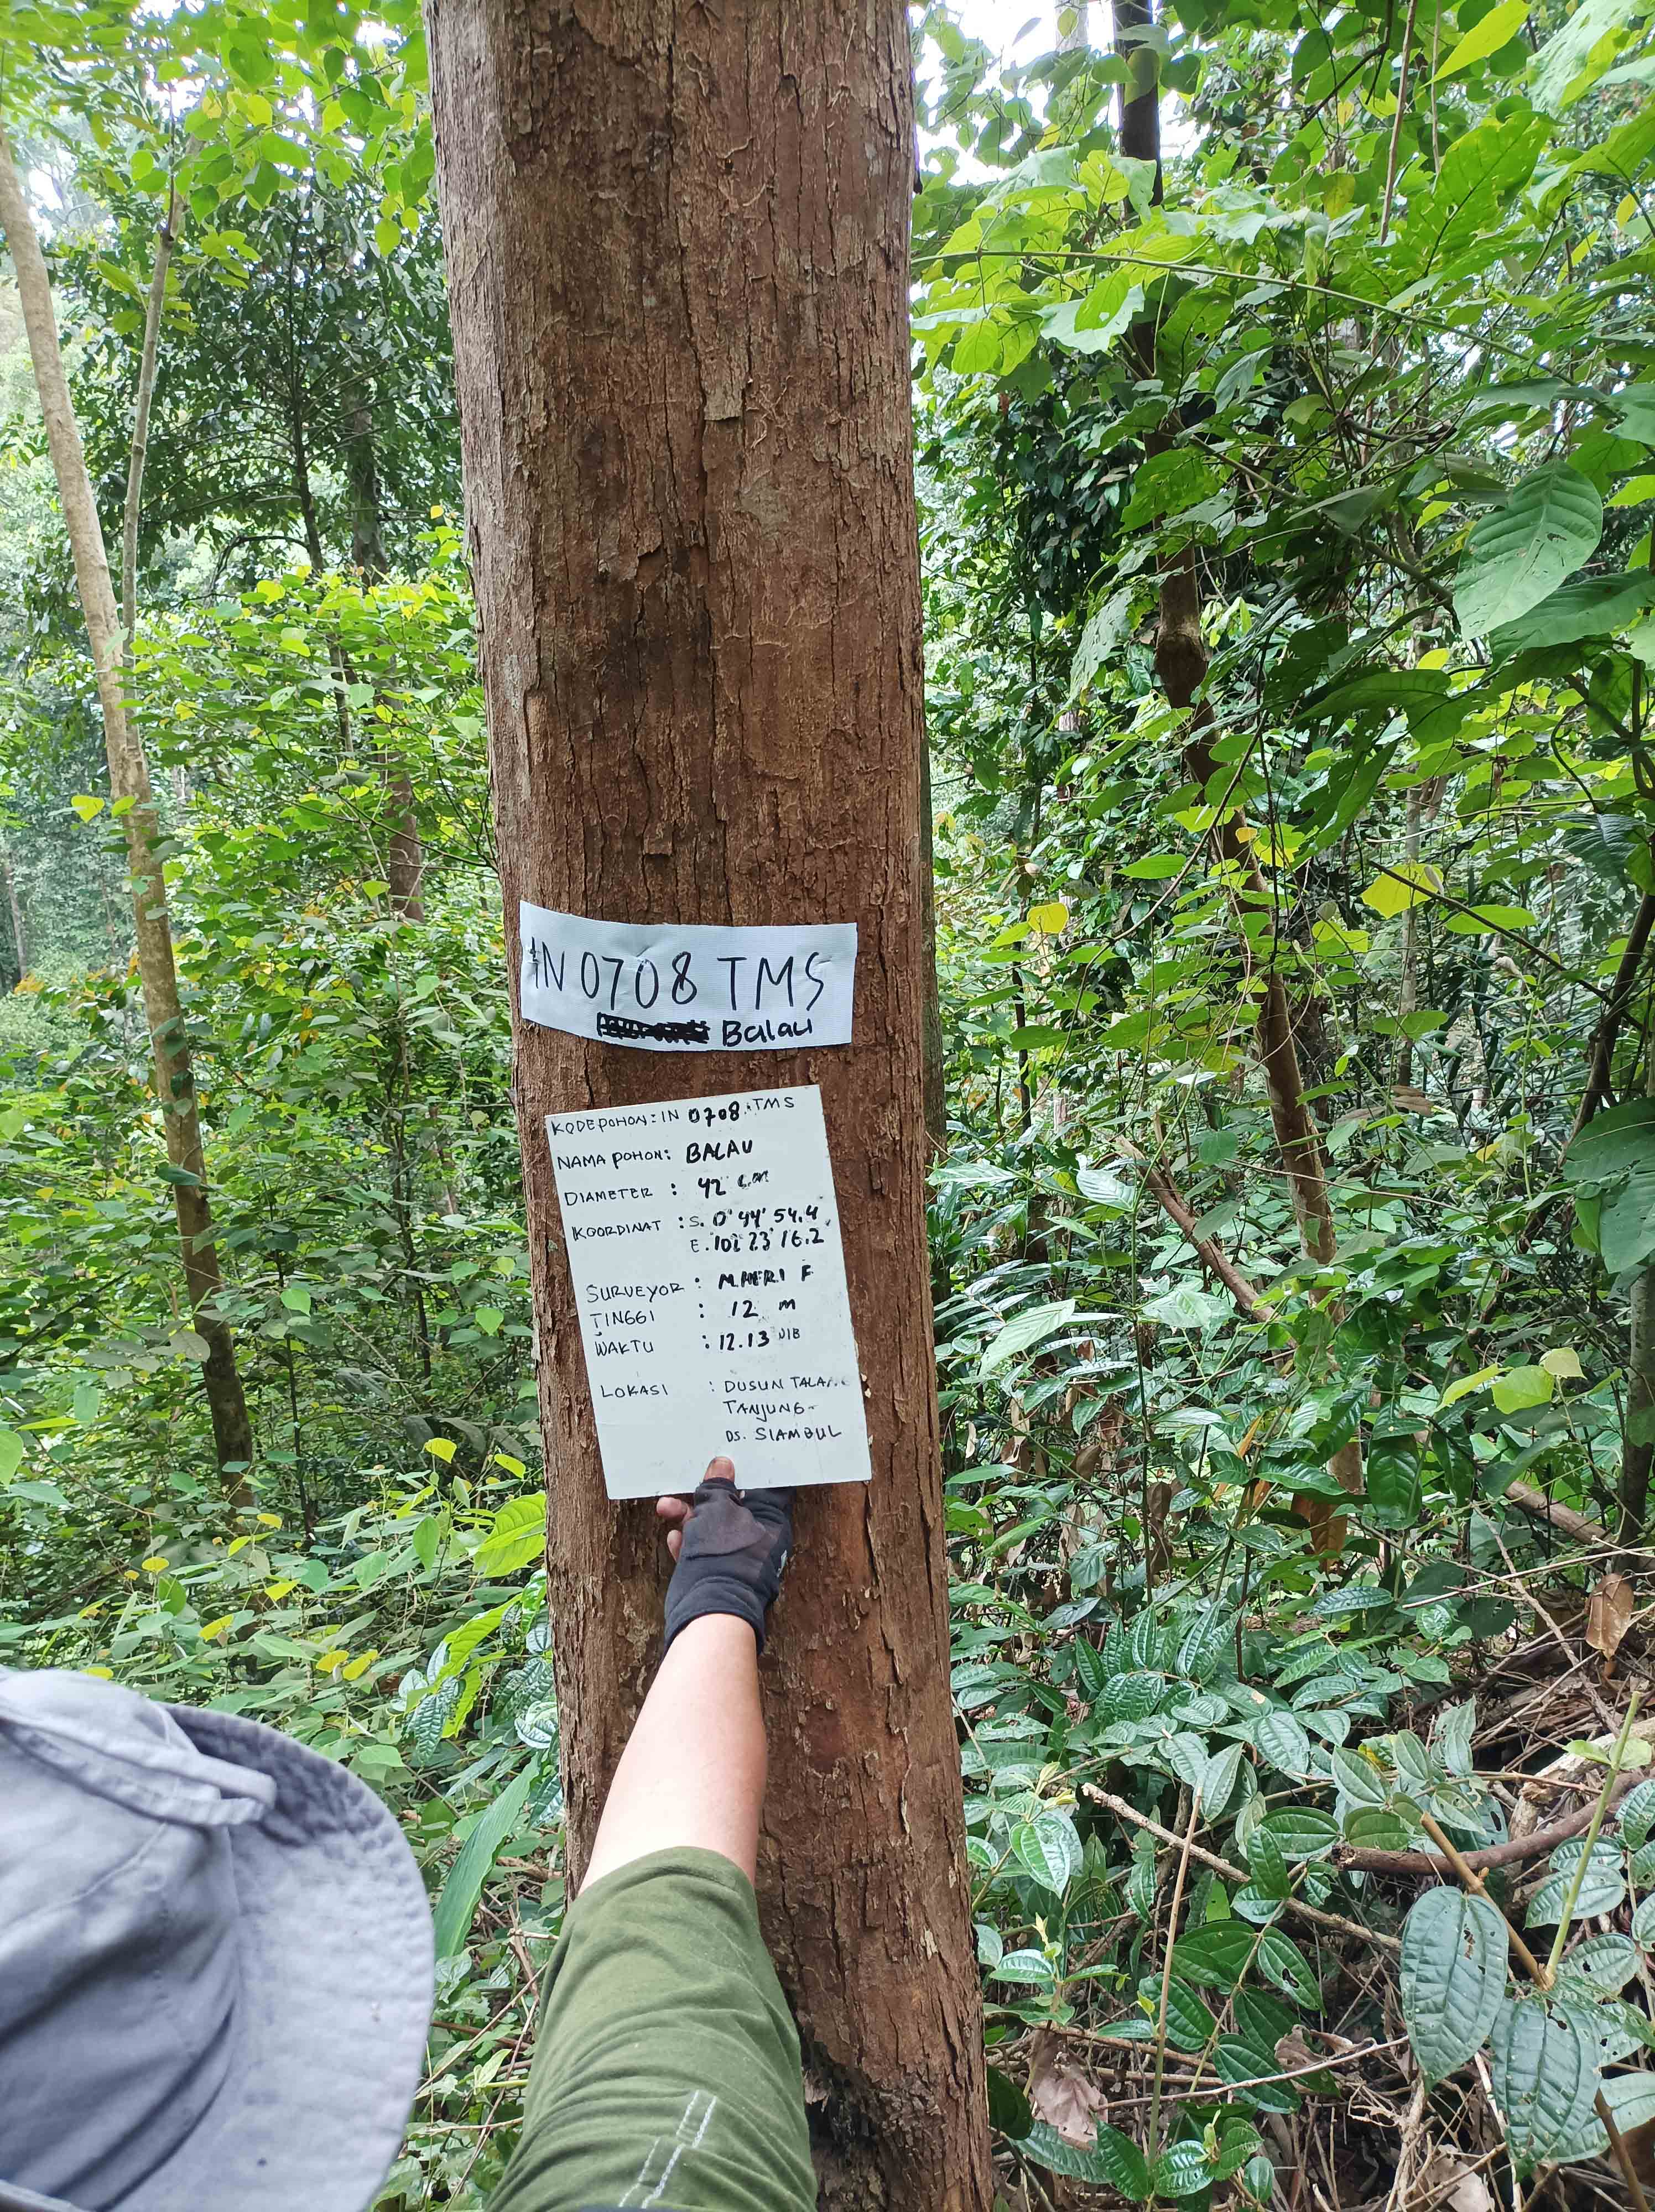 IN 0708 TMS
Balau
KODE POHON: IN 0708 TMS
NAMA POHON: BALAU
DIAMETER : 42 CM
KOORDINAT : S. 0° 44' 54.4
E. 102 23' 16.2
SURVEYOR : F
TINGGI : 12 M
WAKTU : 12.13 WIB
LOKASI : DUSUN TALANG
TANJUNG
DS. SIAMBUL